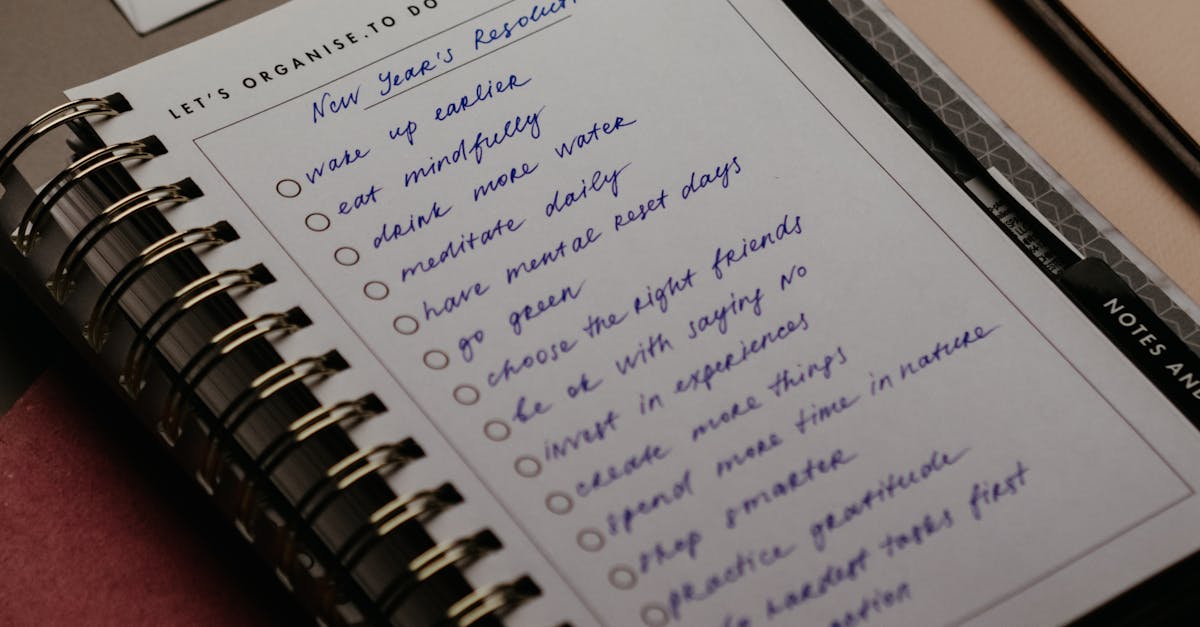 LET'S ORGANISE.TO DO
New Year's
wake up earlier
eat mindfully
drink more water
meditate daily
have mental reset days
go green
choose the right friends
be ok with saying NO
invest in experiences
create more things
spend more time in nature
shop smarter
practice gratitude
hardest tasks first
NOTES